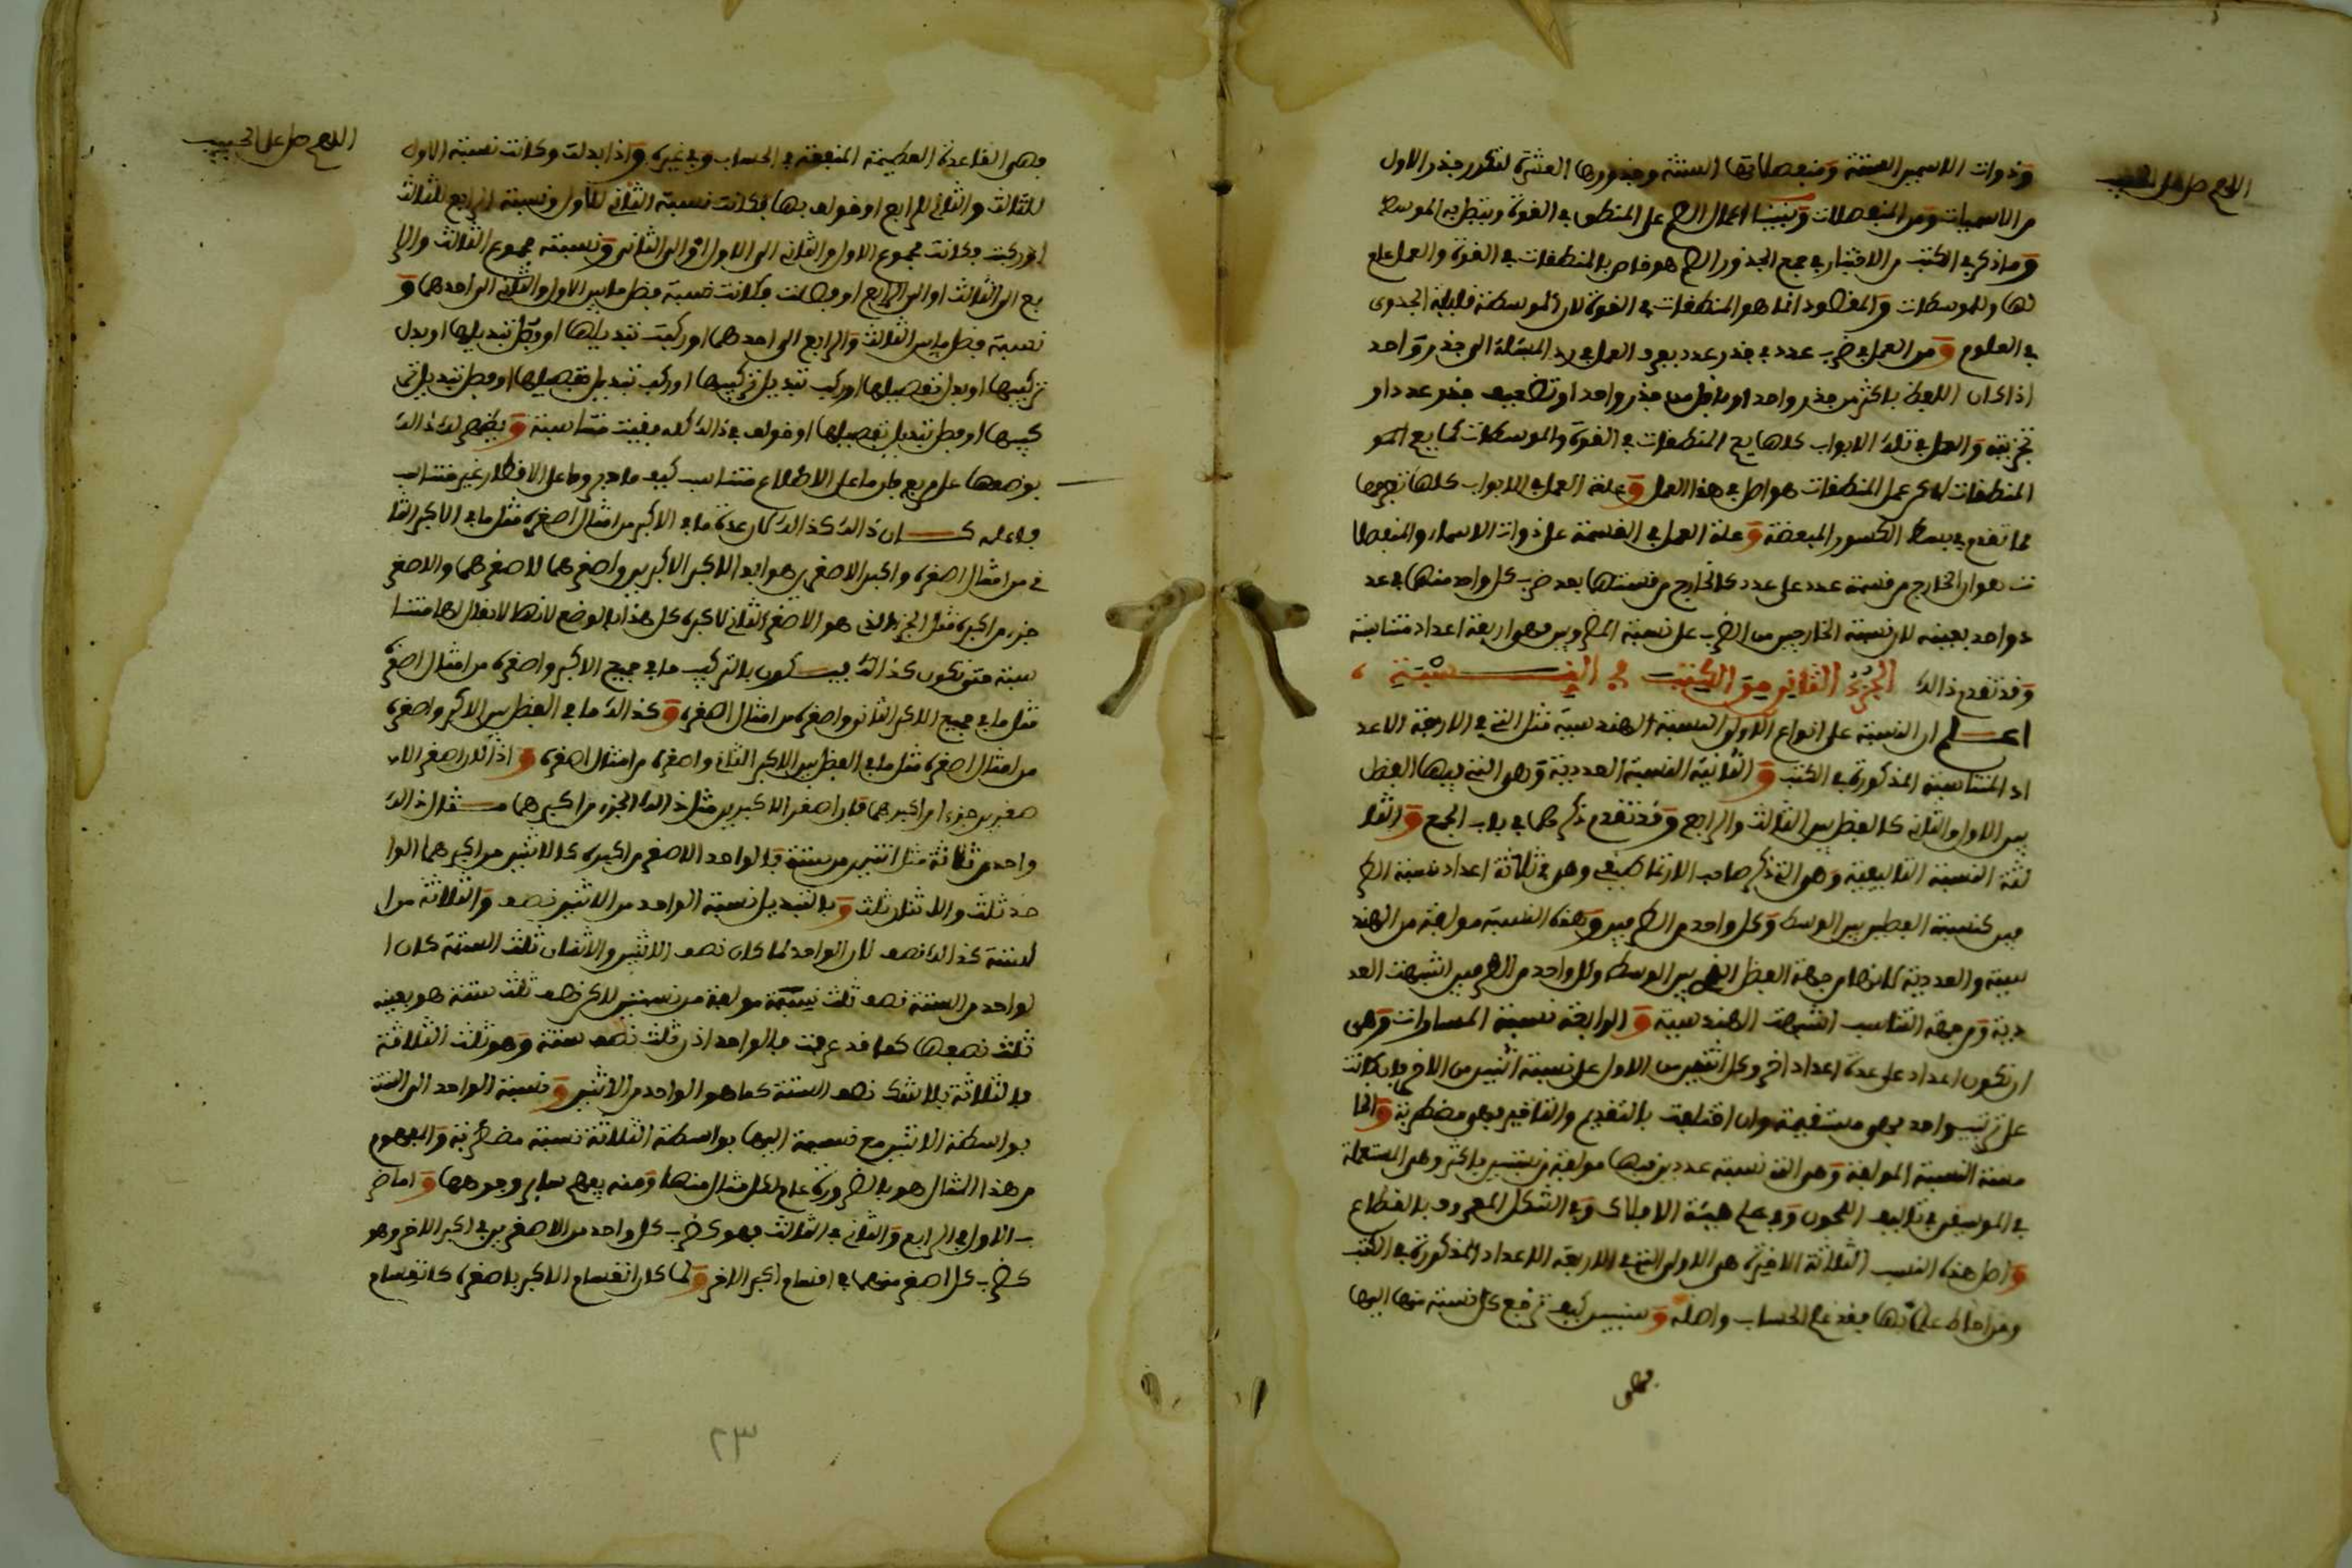 اللهم صل على الحبيب
وذوات الاسمين الستة ومنفصلاتها الستة وجذورها العشرة لتكرر جذر الاول
من الاسميات ومن المنفصلات وبينا اعمال على المنطق في القوة الموسط
وما ذكر في الكتب من الاختبار في جمع الجذور هو خاص بالمنطقات في القوة والعمل عام
لها وللموسطات والمقصود انما هو المنطقات في القوة لان الموسطة قليلة الجدوى
في العلوم ومن العمل في ضرب عدد في جذر عدد يعرف العمل في رد المسئلة الى جذر واحد
اذا كان اللفظ باكثر من جذر واحد او باقل من جذر واحد او تضعيف جذر عدد او
تجزيته والعمل في تلك الابواب كلها في المنطقات في القوة والموسطات
المنطقات عمل المنطقات هو اصل في هذا العمل وعلة العمل في الابواب كلها
مما تقدم في بسط الكسور المبعضة وعلة العمل في القسمة على ذوات الاسماء والمنفصلا
ت هو ان الخارج من قسمة عدد على عدد كالخارج من قسمتها بعد ضرب كل واحد منها في عد
د واحد بعينه لان نسبة الخارجين من الضرب على نسبة المضروبين فهو اربعة اعداد متناسبة
وقد تقدم ذالك الجزء الثاني من الكتب في النسبة
اعلم ان النسبة على انواع الاولى النسبة الهندسية مثل التي في الاربعة الاعد
اد المتناسبة المذكورة في الكتب والثانية النسبة العددية وهي التي فيها الفضل
بين الاول والثاني كالفضل بين الثالث والرابع وقد تقدم ذكرهما في باب الجمع والثا
لثة النسبة التاليفية وهي التي ذكر صاحب الارتماطيقي وهي في ثلاثة اعداد نسبة الطر
فين كنسبة الفضلين بين الوسط وكل واحد من الطرفين وهذه النسبة مولفة من الهند
سية والعددية لانها من جهة الفضل الذي بين الوسط وكل واحد من الطرفين اشبهت العد
دية ومن جهة التناسب اشبهت الهندسية والرابعة نسبة المساوات وهي
ان تكون اعداد على عدة اعداد اخر وكل اثنين من الاول على نسبة اثنين من الاخر فان كانت
على ترتيب واحد فهي مستقيمة وان اختلفت بالتقديم والتاخير فهي مضطربة والخا
مسة النسبة المولفة وهي التي نسبة عددين فيها مولفة من نسبتين باكثر وهي المستعملة
في الموسيقى في تاليف اللحون وفي علم هيئة الافلاك وفي الشكل المعروف بالقطاع
واصل هذه النسب الثلاثة الاخيرة هي الاولى التي في الاربعة الاعداد المذكورة في الكتب
ومن احاط علما بها فقد علم الحساب واصله وسنبين كيف ترجع كل نسبة منها اليها
فهي
اللهم صل على الحبيب
فهي القاعدة العظيمة المنفعة في الحساب وفي غيره واذا بدلت وكانت نسبة الاول
للثالث والثاني للرابع او خولف بها فكانت نسبة الثاني للاول ونسبة الرابع للثالث
او ركبت فكانت مجموع الاول والثاني الى الاول او الى الثاني ونسبة مجموع الثالث والرا
بع الى الثالث او الى الرابع او فصلت فكانت نسبة فضل ما بين الاول والثاني الى احدهما و
نسبة فضل ما بين الثالث والرابع الى احدهما او ركبت تبديلها او فصل تبديلها او بدل
تركيبها او بدل تفصيلها او ركب تبديل تركيبها او ركب تبديل تفصيلها او فصل تبديل تر
كيبها او فصل تبديل تفصيلها او خولف في ذالك كله بقيت متناسبة ويظهر لك ذالك
بوضعها على مربع فان ما على الاضلاع متناسب كيف ما دير وما على الاقطار غير متناسب
كان ذالك كذالك كان عدة ما في الاكبر من امثال اصغره مثل ما في الاكبر الثا
ني من امثال اصغره واكبر الاصغرين هو ابدا لاكبر الاكبرين واصغرهما لاصغرهما والاصغر
جزء من اكبره مثل الجزء الذي هو الاصغر الثاني لاكبره كل هذا بالوضع لانها لا يقال لها متنا
سبة حتى تكون كذالك فيكون بالتركيب ما في جميع الاكبر واصغره من امثال اصغره
مثل ما في جميع الاكبر الثاني واصغره من امثال اصغره وكذالك ما في الفضل بين الاكبر واصغره
من امثال اصغره مثل ما في الفضل بين الاكبر الثاني واصغره من امثال اصغره واذا كان اصغر الا
صغرين جزءا من اكبرهما فان اصغر الاكبرين مثل ذالك الجزء من اكبرهما مثال ذالك
واحد من ثلاثة مثل اثنين من ستة فالواحد الاصغر من اكبره كالاثنين من اكبرهما الوا
حد ثلث والاثنان ثلث وبالتبديل نسبة الواحد من الاثنين نصف والثلاثة من ا
لستة كذالك نصف لان الواحد لما كان نصف الاثنين والاثنان ثلث الستة كان ا
لواحد من الستة نصف ثلث نسبة مولفة من نسبتين لاكن نصف ثلث ستة هو بعينه
ثلث نصفها كما قد عرفت فالواحد اذن ثلث نصف ستة وهو ثلث الثلاثة
فالثلاثة بلا شك نصف الستة كما هو الواحد من الاثنين ونسبة الواحد الى الستة
بواسطة الاثنين مع نسبة اليها بواسطة الثلاثة نسبة مضطربة والمفهوم
من هذا المثال هو بالضرورة عام لكل مثال منها ومنه يفهم ساير وجوهها واما ضر
ب الاول في الرابع والثاني في الثالث فهو كضرب كل واحد من الاصغرين في اكبر الاخر وهو
كضرب كل اصغر منهما في اقسام اكبر الاخر ولما كان انقسام الاكبر باصغره كانقسام
٢٣